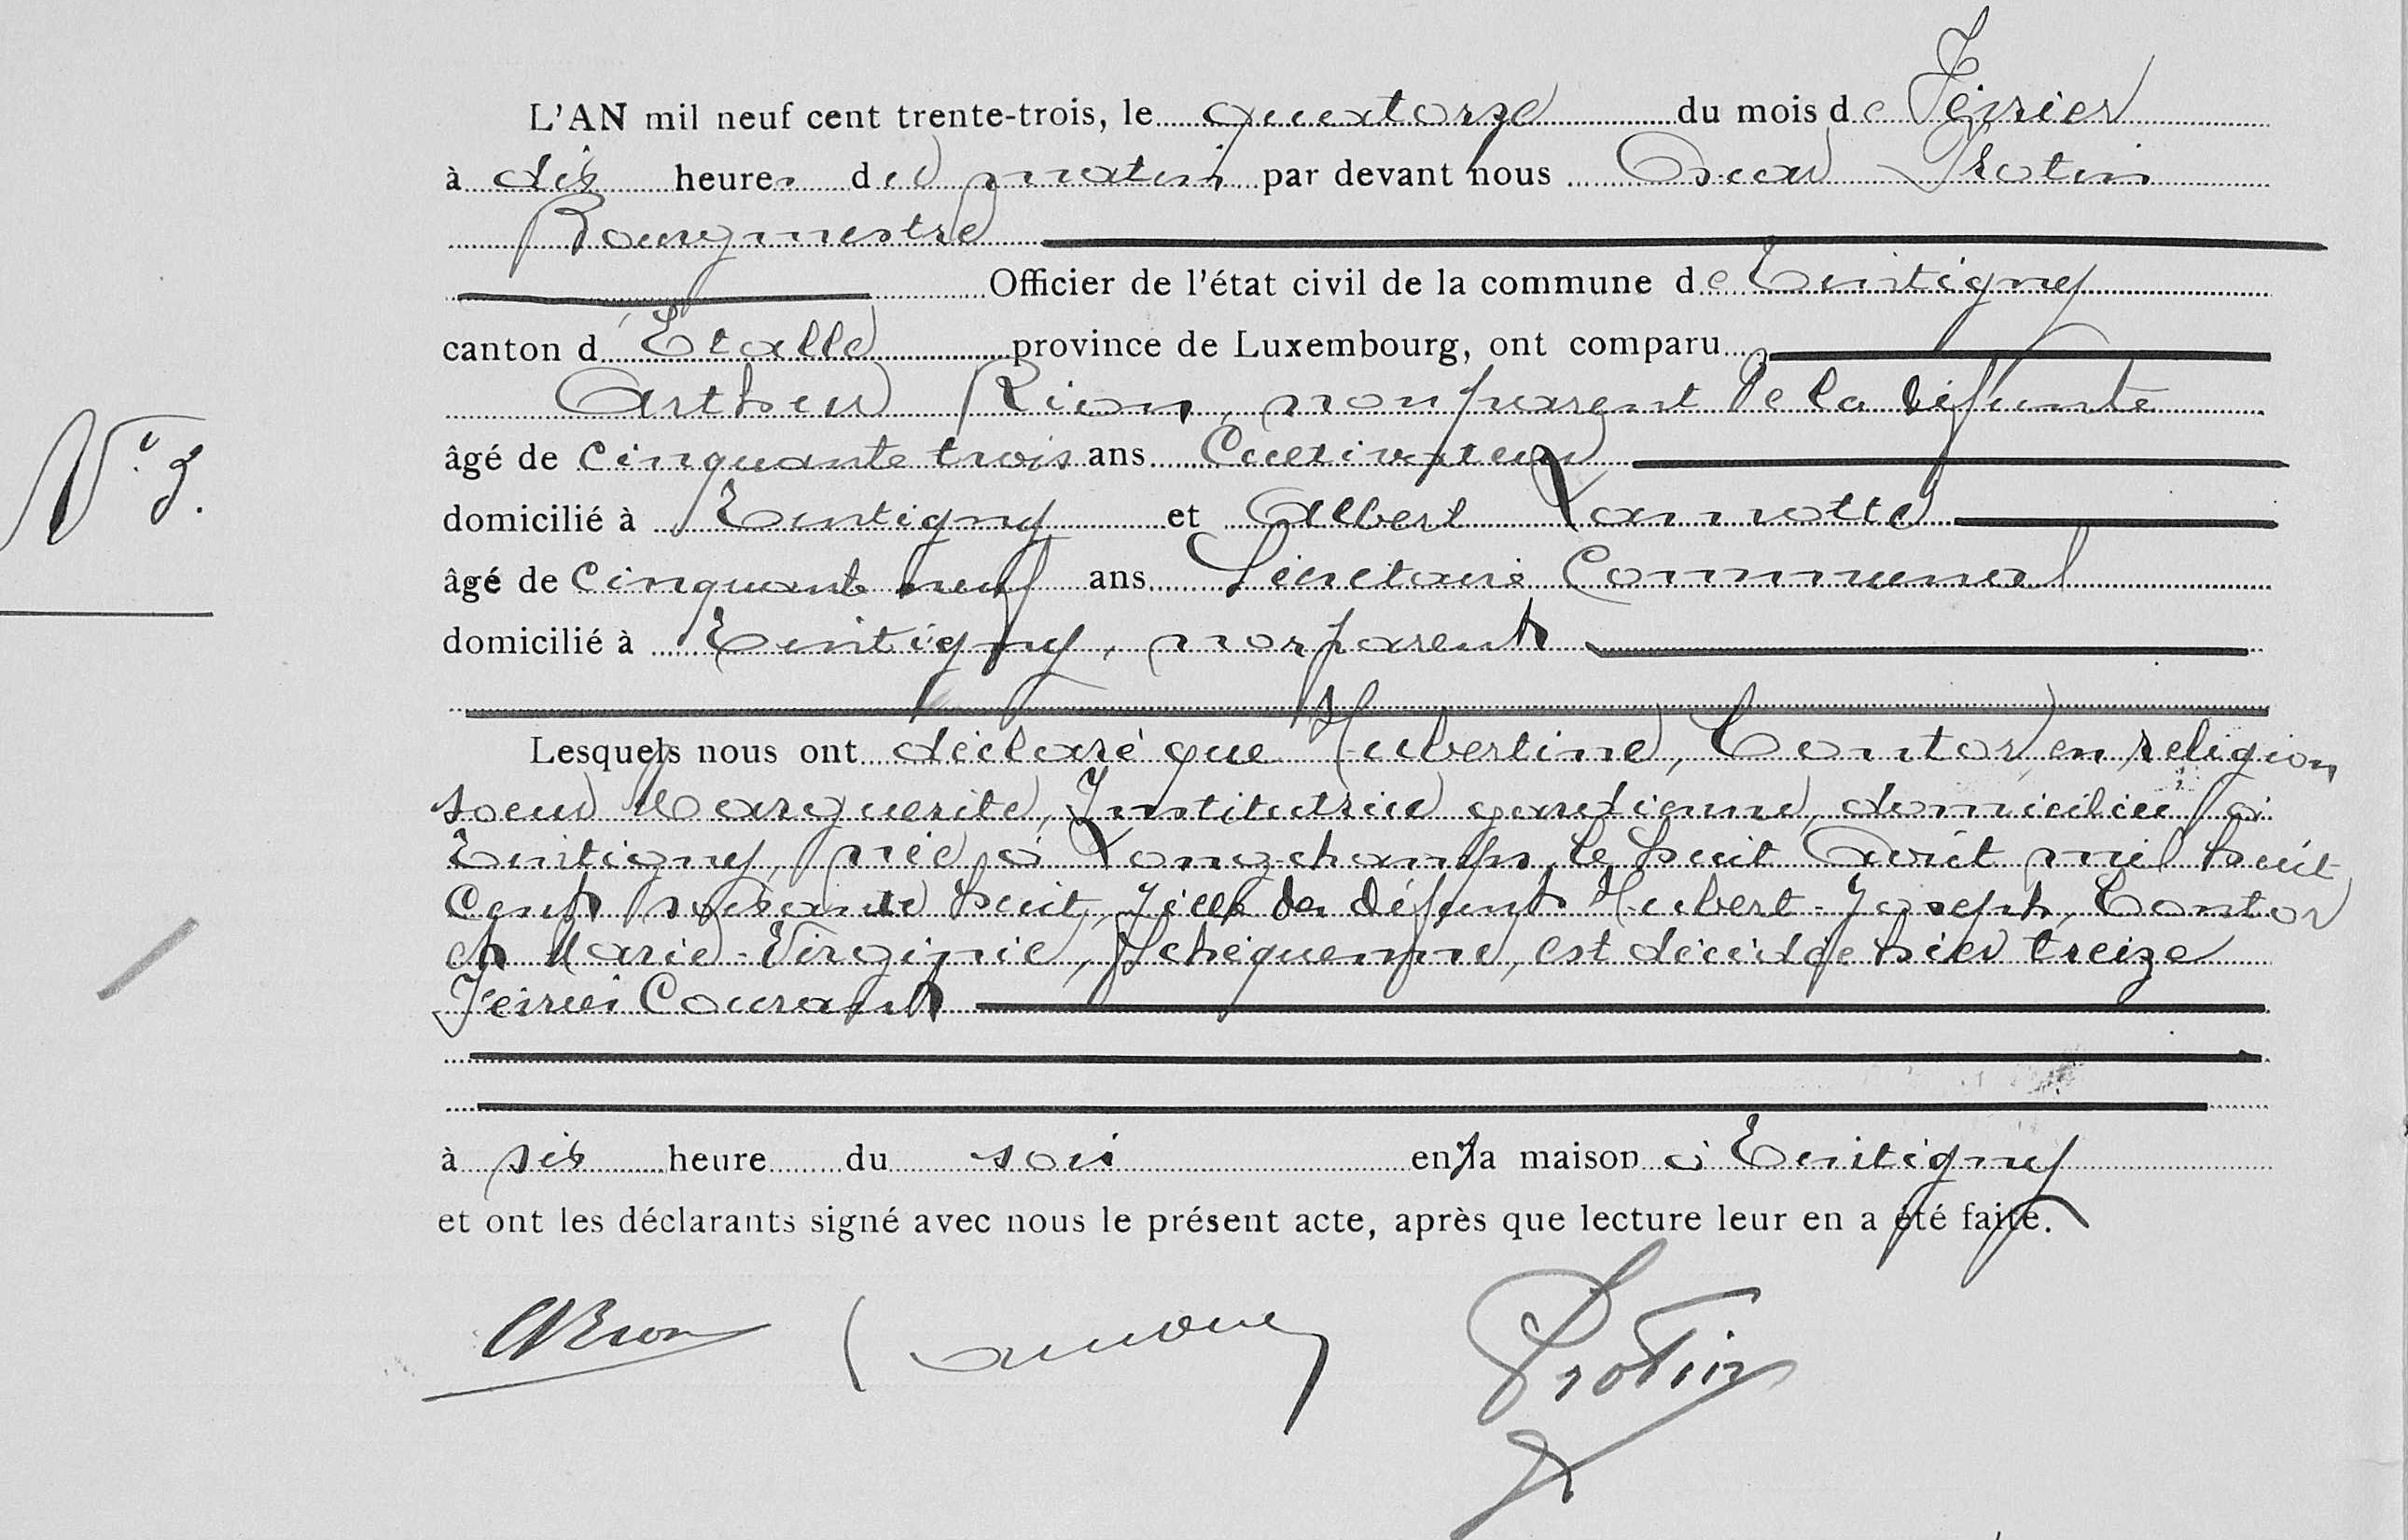 L'AN mil neuf cent trente-trois, le quatorze du mois de Février
à dix heures du matin par devant nous Oscar Protin
Bourgmestre
Officier de l'état civil de la commune de Tintigny
canton d'Etalle province de Luxembourg, ont comparu
Arthur Rion, non parent de la défunte
âgé de cinquante trois ans Cultivateur
N° 3.
domicilié à Tintigny et Albert Lamotte
âgé de cinquante neuf ans Secrétaire Communal
domicilié à Tintigny, non parent
Lesquels nous ont déclaré que Hubertine, Contor, en religion
soeur Marguerite, Institutrice gardienne, domiciliée à
Tintigny, née à Longchamps, le huit Avril mil huit
cent soixante huit, fille de défunt Hubert-Joseph, Contor
et Marie-Virginie, est décédée hier treize
Février Courant
à six heure du soir en sa maison à Tintigny
et ont les déclarants signé avec nous le présent acte, après que lecture leur en a été faite.
ARion Lamotte Protin